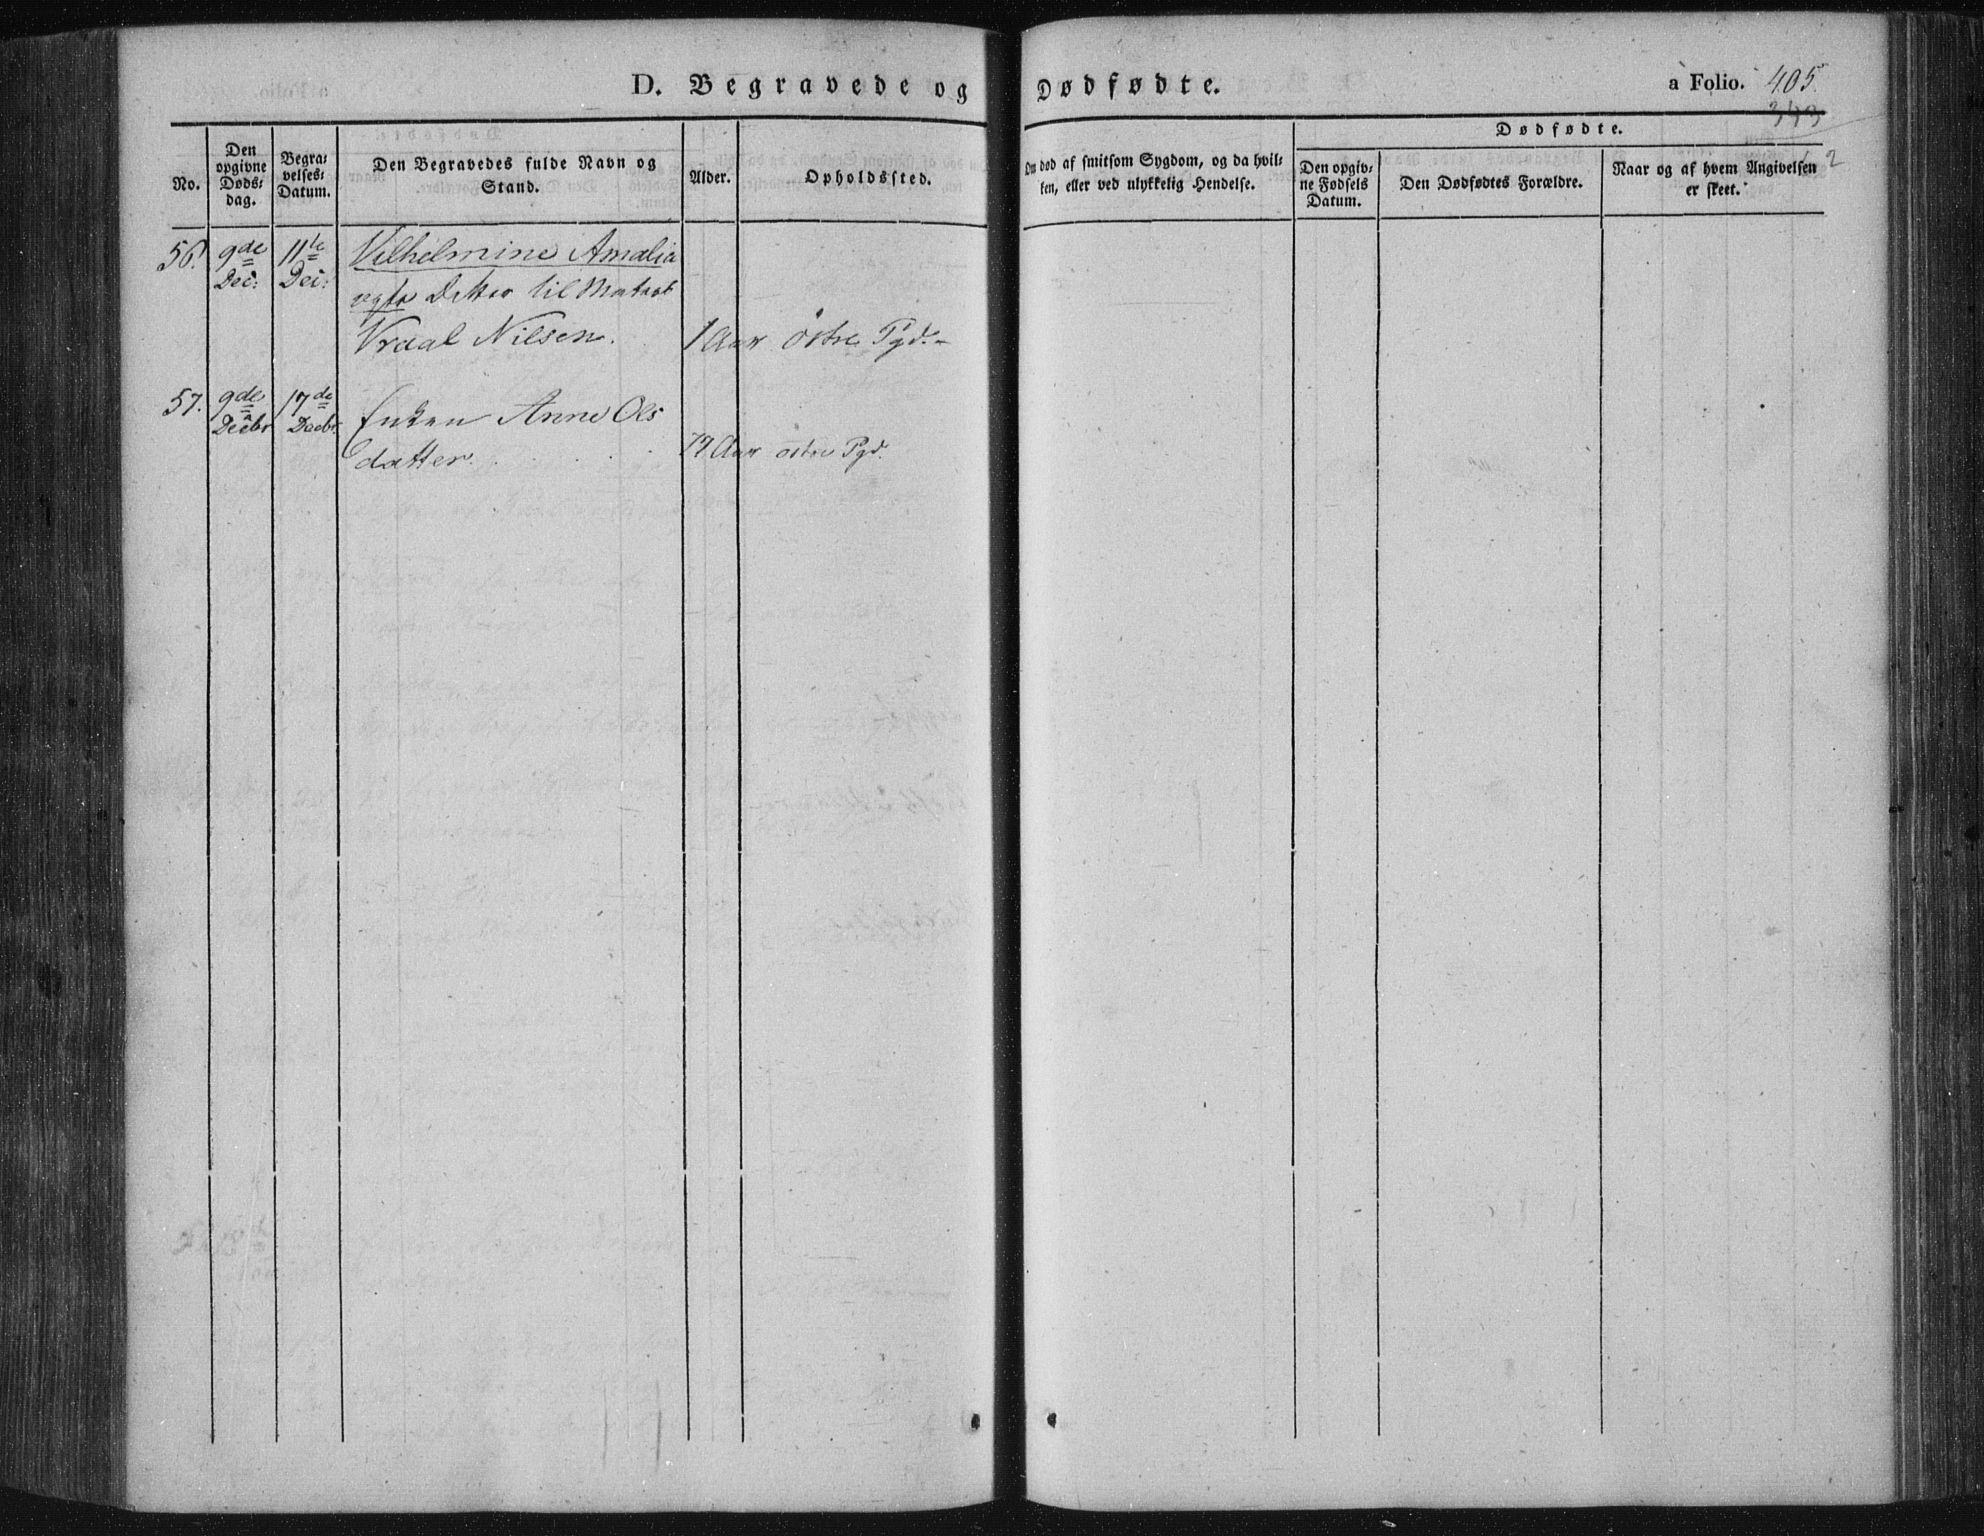 D. Begravede og Dødfødte.
à Folio. 405.
343
2
No.
Den opgivne Døds: dag.
Begra: velses: Datum.
Den Begravedes fulde Navn og Stand.
Alder.
Opholdssted.
Om død af smitsom Sygdom, og da hvil: ken, eller ved ulykkelig Hendelse.
Dødfødte.
Den opgiv: ne Fødsels Datum.
Den Dødfødtes Forældre.
Naar og af hvem Angivelsen er skeet.
56. 9de Dec: 11te Dec: Vilhelmine Amalia
ægte Datter til Matros
Vraal Nilsen. 1 Aar østre Pgd.
57. 9de Decbr 17de Decbr. Enken Anne Ols
datter. 79 Aar østre Pgd.